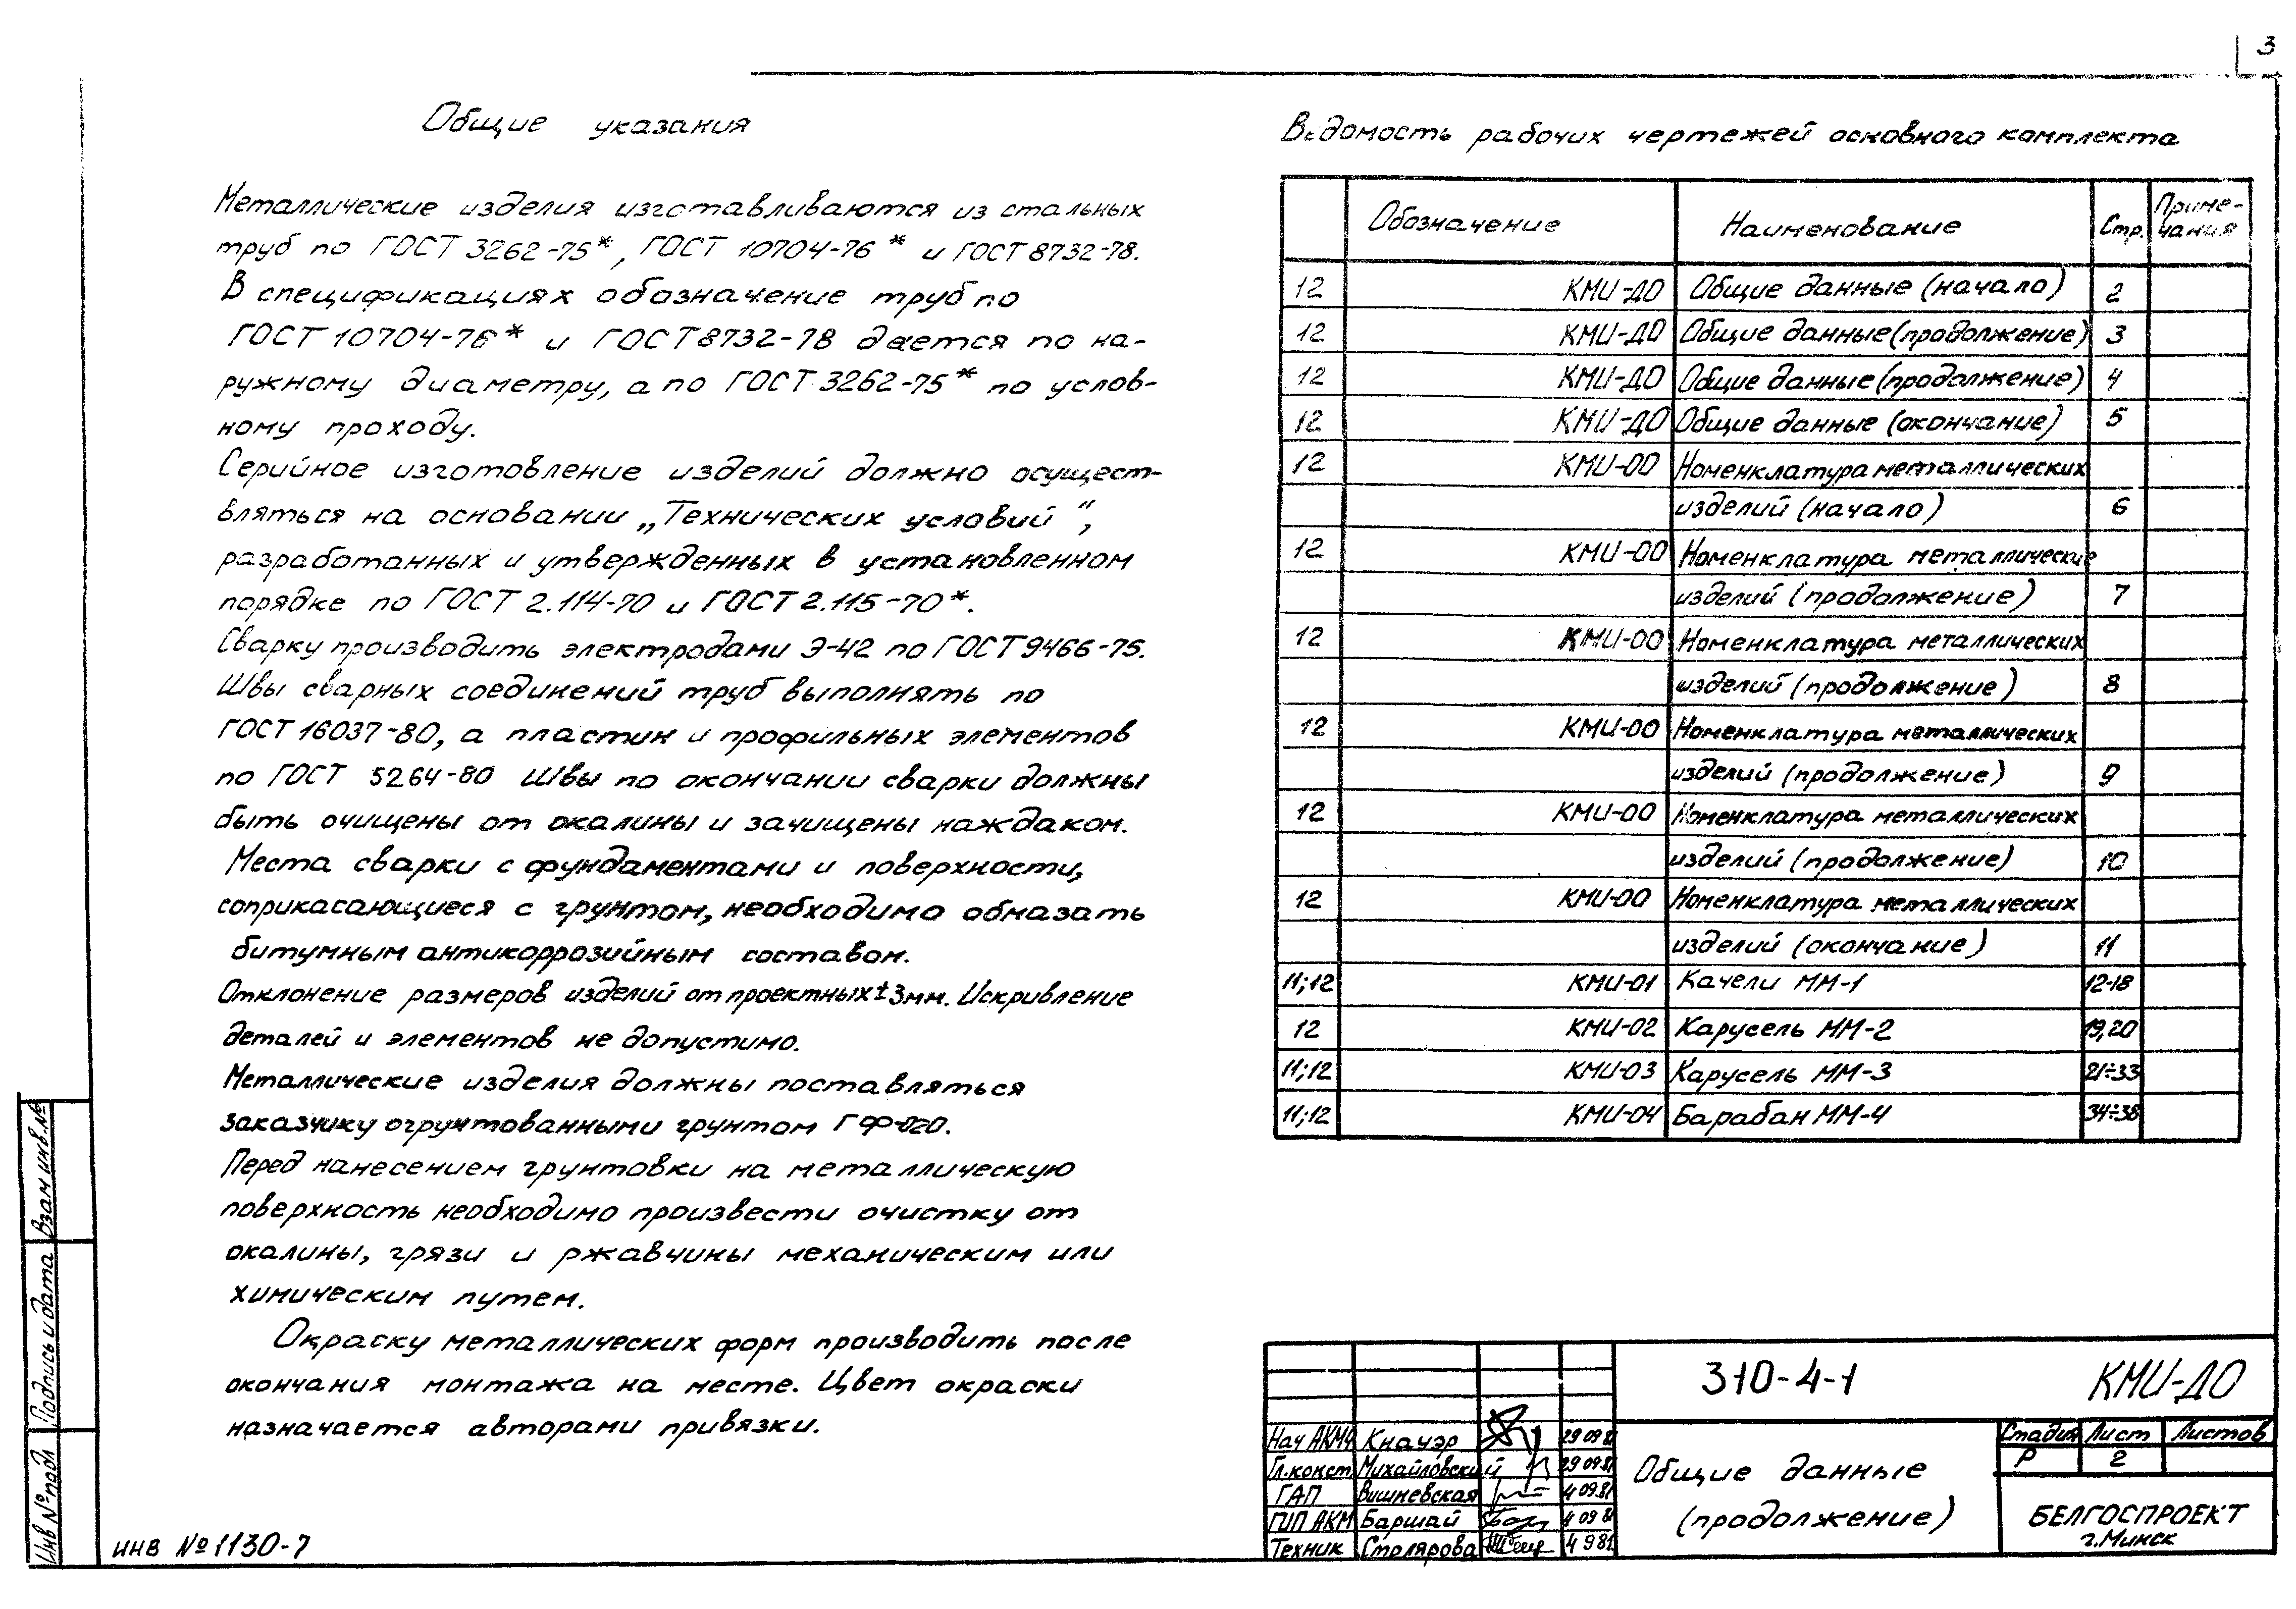 3
Общие указания
Металлические изделия изготавливаются из стальных
труб по ГОСТ 3262-75*, ГОСТ 10704-76* и ГОСТ 8732-78.
В спецификациях обозначение труб по
ГОСТ 10704-76* и ГОСТ 8732-78 дается по на-
ружному диаметру, а по ГОСТ 3262-75* по услов-
ному проходу.
Серийное изготовление изделий должно осущест-
вляться на основании „Технических условий“,
разработанных и утвержденных в установленном
порядке по ГОСТ 2.114-70 и ГОСТ 2.115-70*.
Сварку производить электродами Э-42 по ГОСТ 9466-75.
Швы сварных соединений труб выполнять по
ГОСТ 16037-80, а пластин и профильных элементов
по ГОСТ 5264-80 Швы по окончании сварки должны
быть очищены от окалины и зачищены наждаком.
Места сварки с фундаментами и поверхности,
соприкасающиеся с грунтом, необходимо обмазать
битумным антикоррозийным составом.
Отклонение размеров изделий от проектных ±3мм. Искривление
деталей и элементов не допустимо.
Металлические изделия должны поставляться
заказчику огрунтованными грунтом ГФ-020.
Перед нанесением грунтовки на металлическую
поверхность необходимо произвести очистку от
окалины, грязи и ржавчины механическим или
химическим путем.
Окраску металлических форм производить после
окончания монтажа на месте. Цвет окраски
назначается авторами привязки.
Ведомость рабочих чертежей основного комплекта
Обозначение Наименование Стр. Приме-
чания
12 КМИ-ДО Общие данные (начало) 2
12 КМИ-ДО Общие данные (продолжение) 3
12 КМИ-ДО Общие данные (продолжение) 4
12 КМИ-ДО Общие данные (окончание) 5
12 КМИ-00 Номенклатура металлических
изделий (начало) 6
12 КМИ-00 Номенклатура металлические
изделий (продолжение) 7
12 КМИ-00 Номенклатура металлических
изделий (продолжение) 8
12 КМИ-00 Номенклатура металлических
изделий (продолжение) 9
12 КМИ-00 Номенклатура металлических
изделий (продолжение) 10
12 КМИ-00 Номенклатура металлических
изделий (окончание) 11
11;12 КМИ-01 Качели ММ-1 12-18
12 КМИ-02 Карусель ММ-2 19,20
11;12 КМИ-03 Карусель ММ-3 21÷33
11;12 КМИ-04 Барабан ММ-4 34÷38
310-4-1 КМИ-ДО
Нач АКМ4 Кнауэр 29 09 81
Гл.конст Михайловский 29 09.81
ГАП Вишневская 4 09.81
ГИП АКМ Баршай 4 09 81
Техник Столярова 4 9 81
Общие данные
(продолжение)
Стадия Лист Листов
Р 2
БЕЛГОСПРОЕКТ
г.Минск
Взам инв.№
Подпись и дата
Инв №подл
ИНВ №1130-7